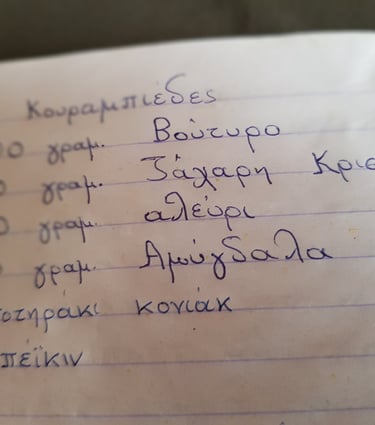 Κουραμπιέδες
0 γραμ. Βούτυρο
γραμ. Ζάχαρη Κρισ
γραμ. αλεύρι
γραμ. Αμύγδαλα
οτηράκι κονιάκ
πέϊκιν